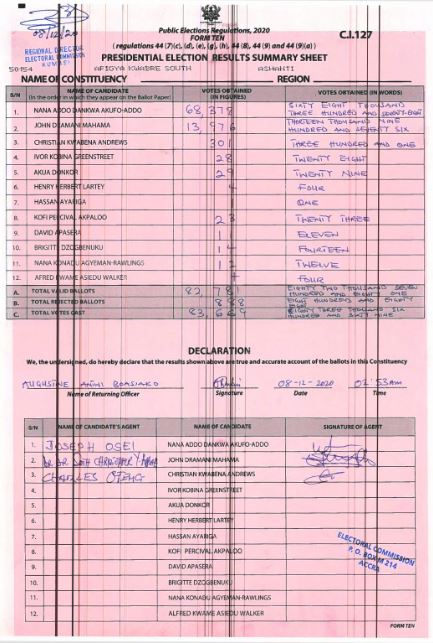 08/12/20
Public Elections Regulations, 2020
FORM TEN
C.I.127
( regulations 44 (7)(c), (d), (e), (g), (h), 44 (8), 44 (9) and 44 (9)(a) )
REGIONAL DIRECTOR
ELECTORAL COMMISSION
KUMASI
PRESIDENTIAL ELECTION RESULTS SUMMARY SHEET
AFIGYA KWABRE SOUTH ASHANTI
NAME OF CONSTITUENCY REGION
S/N NAME OF CANDIDATE (In the order in which they appear on the Ballot Paper) VOTES OBTAINED (IN FIGURES) VOTES OBTAINED (IN WORDS)
1. NANA ADDO DANKWA AKUFO-ADDO 68,378 SIXTY EIGHT THOUSAND
THREE HUNDRED AND SEVENTY-EIGHT
2. JOHN DRAMANI MAHAMA 13,976 THIRTEEN THOUSAND NINE
HUNDRED AND SEVENTY SIX
3. CHRISTIAN KWABENA ANDREWS 301 THREE HUNDRED AND ONE
4. IVOR KOBINA GREENSTREET 28 TWENTY EIGHT
5. AKUA DONKOR 29 TWENTY NINE
6. HENRY HERBERT LARTEY 4 FOUR
7. HASSAN AYARIGA ONE
8. KOFI PERCIVAL AKPALOO 23 TWENTY THREE
9. DAVID APASERA 11 ELEVEN
10. BRIGITTE DZOGBENUKU 14 FOURTEEN
11. NANA KONADU AGYEMAN-RAWLINGS 12 TWELVE
12. AFRED KWAME ASIEDU WALKER 4 FOUR
A. TOTAL VALID BALLOTS 82,781 EIGHTY TWO THOUSAND SEVEN
HUNDRED AND EIGHTY ONE
B. TOTAL REJECTED BALLOTS 888 EIGHT HUNDRED AND EIGHTY
EIGHT
C. TOTAL VOTES CAST 83,669 EIGHTY THREE THOUSAND SIX
HUNDRED AND SIXTY NINE
DECLARATION
We, the undersigned, do hereby declare that the results shown above are true and accurate account of the ballots in this Constituency
AUGUSTINE BOASIAKO 08-12-2020 02:53AM
Name of Returning Officer Signature Date Time
S/N NAME OF CANDIDATE'S AGENT NAME OF CANDIDATE SIGNATURE OF AGENT
1. JOSEPH OSEI NANA ADDO DANKWA AKUFO-ADDO
2. JOHN DRAMANI MAHAMA
3. CHARLES CHRISTIAN KWABENA ANDREWS
4. IVOR KOBINA GREENSTREET
5. AKUA DONKOR
6. HENRY HERBERT LARTEY
7. HASSAN AYARIGA
8. KOFI PERCIVAL AKPALOO
9. DAVID APASERA
10. BRIGITTE DZOGBENUKU
11. NANA KONADU AGYEMAN-RAWLINGS
12. ALFRED KWAME ASIEDU WALKER
ELECTORAL COMMISSION
P. O. BOX M 214
ACCRA
FORM TEN